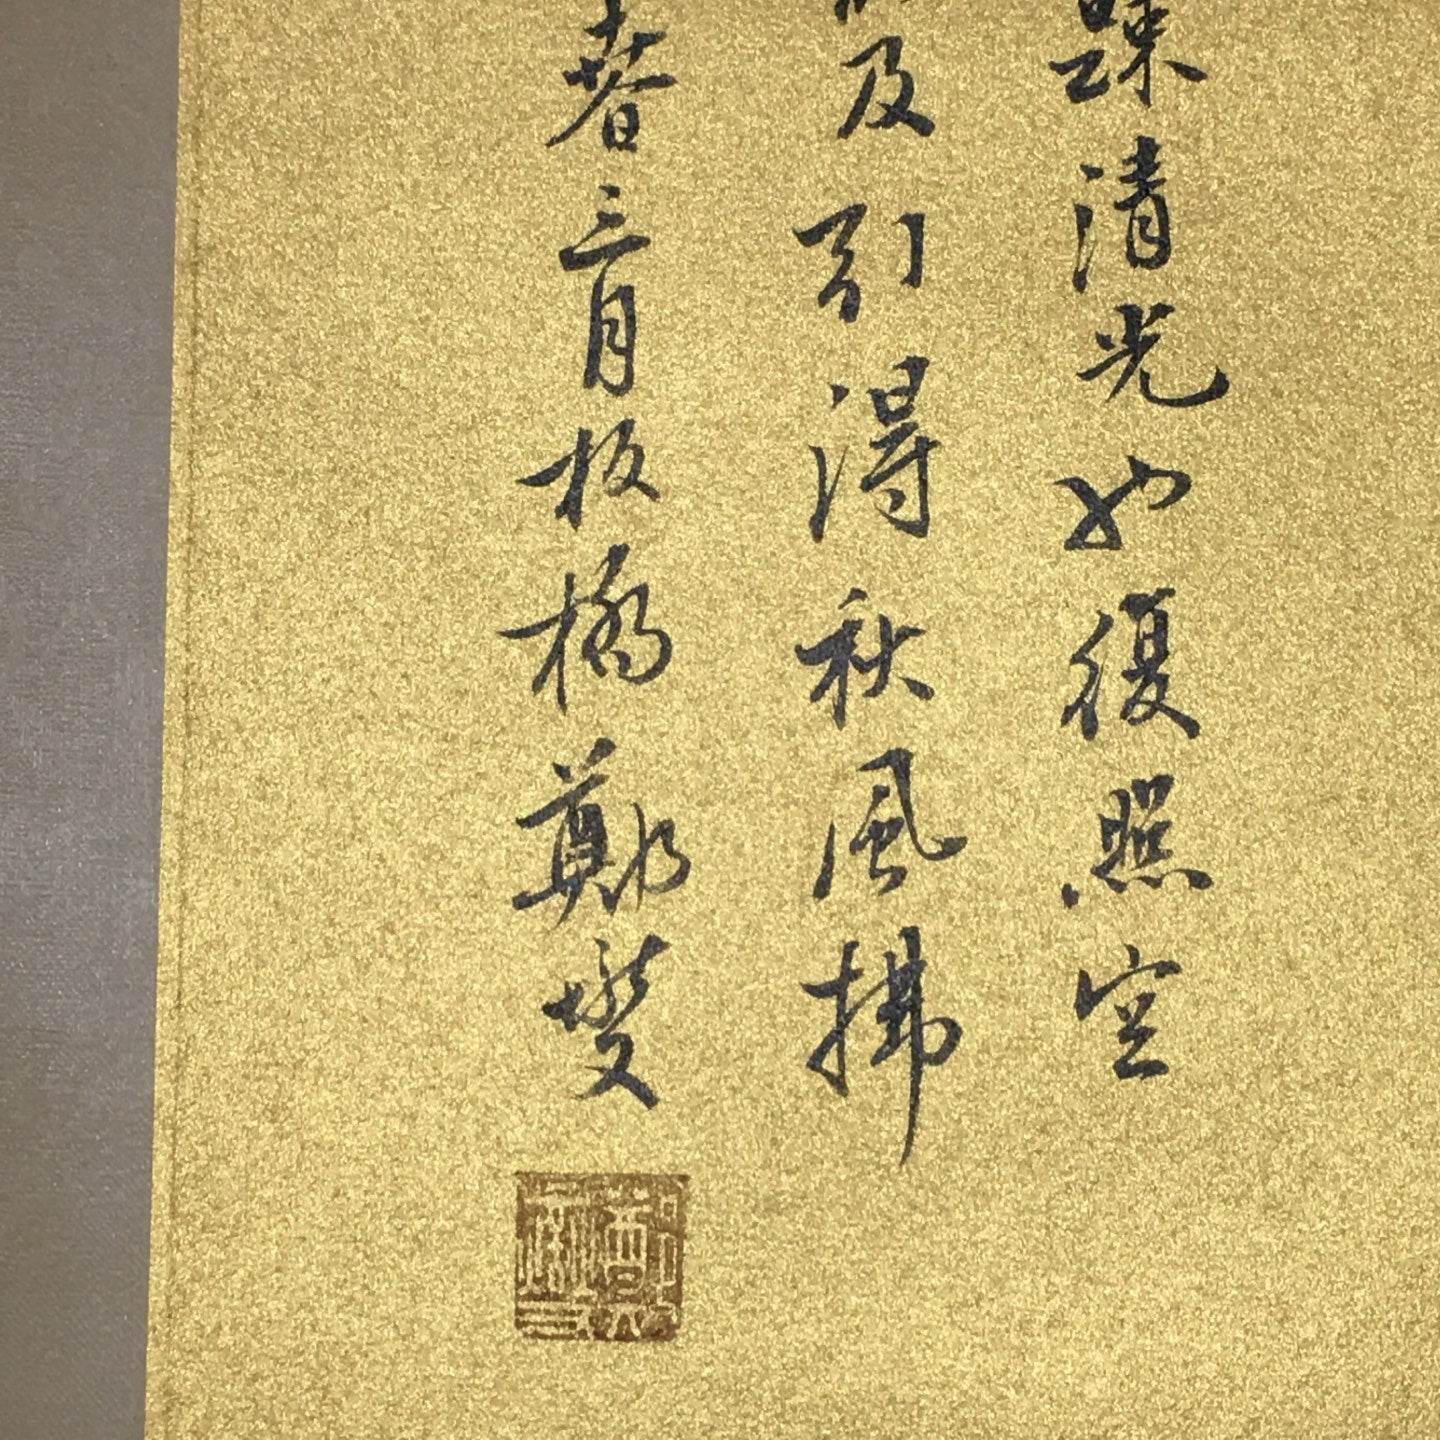 疎清光也復照空
及引得秋風拂
春三月板橋鄭燮